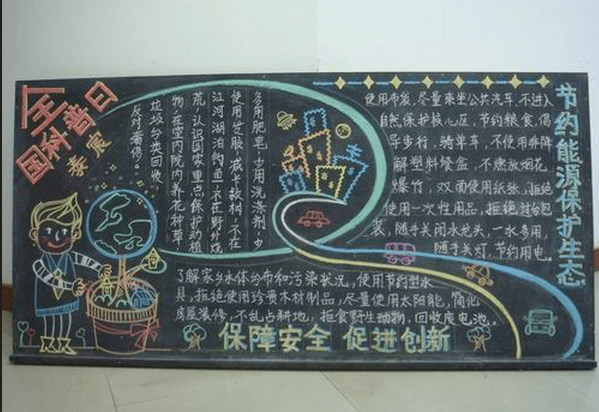 全国科普日
多用肥皂,少用洗涤剂,少
使用 胶,减卡救树,不在
江河湖泊钓鱼,不在野外烧
荒,认识国家重点保护动植
物,在室内院内养花种草,
垃圾分类回收,
反对奢侈。
使用布袋,尽量乘坐公共汽车,不进入
自然保护核心区,节约粮食,倡
导步行,骑单车,不使用非降
解塑料餐盒,不燃放烟花
爆竹,双面使用纸张,拒绝
使用一次性用品,拒绝过台包
装,随手关闭水龙头,一水多用,
随手关灯,节约用电。
节约能源保护生态
了解家乡水体分布和污染状况,使用节约型水
具,拒绝使用珍贵木材制品,尽量使用太阳能,简化
房屋装修,不乱占耕地,拒食野生动物,回收废电池。
保障安全 促进创新